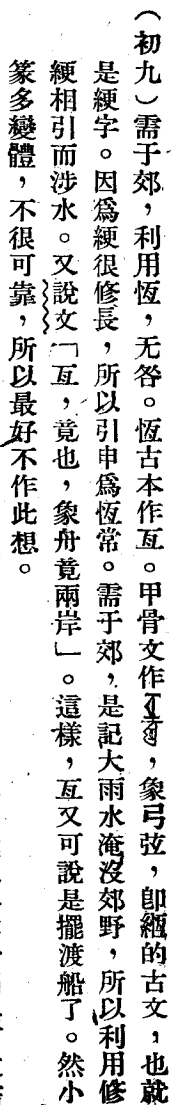 （初九）需于郊，利用恆，无咎。恆古本作亙。甲骨文作，象弓弦，卽緪的古文，也就
是綆字。因爲綆很修長，所以引申爲恆常。需于郊，是記大雨水淹沒郊野，所以利用修
綆相引而涉水。又說文「亙，竟也，象舟竟兩岸」。這樣，亙又可說是擺渡船了。然小
篆多變體，不很可靠，所以最好不作此想。